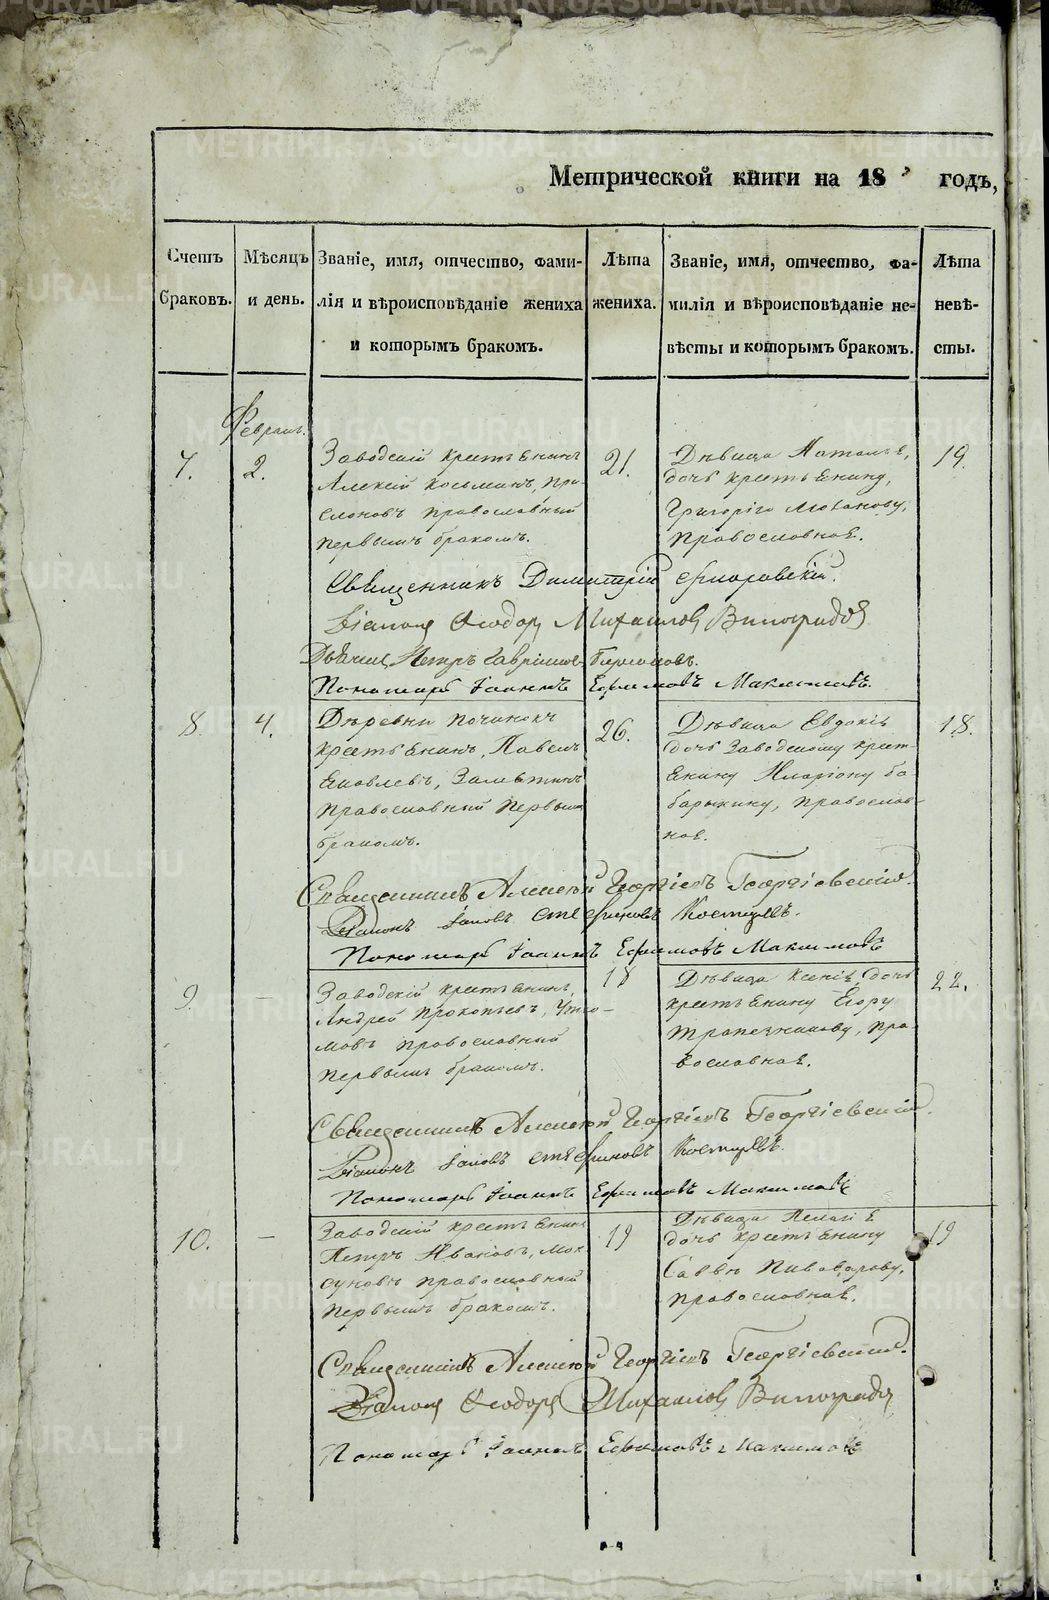 Метрической книги на 18 годъ,
Счетъ браковъ.
Мѣсяцъ и день.
Званіе, имя, отчество, фами-
лія и вѣроисповѣданіе жениха
и которымъ бракомъ.
Лѣта жениха.
Званіе, имя, отчество, фа-
милія и вѣроисповѣданіе не-
вѣсты и которымъ бракомъ.
Лѣта невѣ-
сты.
7.
2.
Заводскій крестьянинъ
Алексѣй Козьминъ,
православный
первымъ бракомъ.
21.
Дѣвица
дочь крестьянину,
Григорію
православная.
19.
Священникъ Димитрій
Діаконъ Ѳеодоръ Михаиловъ Виноградовъ
Дьячекъ Петръ Гавріиловъ
Пономарь Іоаннъ Ефимовъ Максимовъ.
8.
4.
Деревни Починокъ
крестьянинъ, Павелъ
Яковлевъ,
православный первымъ
бракомъ.
26.
Дѣвица Евдокія
дочь Заводскому крест-
янину Иларіону Ба-
барыкину, православ-
ная.
18.
Священникъ Алексѣй Георгіевъ Георгіевскій.
Діаконъ Іаковъ
Пономарь Іоаннъ Ефимовъ Максимовъ
9.
–
Заводскій крестьянинъ,
Андрей Прокопьевъ,
православный
первымъ бракомъ.
18
Дѣвица Ксенія, дочь
крестьянину Егору
Трапезникову, пра-
вославная.
22.
Священникъ Алексѣй Георгіевъ Георгіевскій.
Діаконъ Іаковъ
Пономарь Іоаннъ Ефимовъ Максимовъ
10.
–
Заводскій крестьянинъ
Петръ Ивановъ, Мок-
суновъ православной
первымъ бракомъ.
19
Дѣвица Пелагія
дочь крестьянину
Саввѣ Пивоварову,
православная.
19
Священникъ Алексѣй Георгіевъ Георгіевскій.
Діаконъ Ѳеодоръ Михаиловъ Виноградовъ
Пономарь Іоаннъ Ефимовъ Максимовъ
METRIKI.GASO-URAL.RU